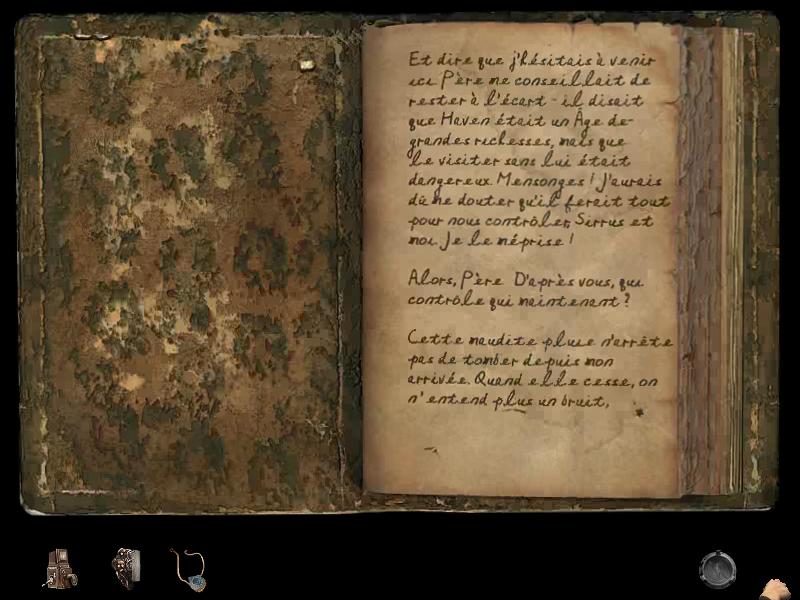 Et dire que j'hésitais à venir
ici. Père me conseillait de
rester à l'écart - il disait
que Haven était un Âge de
grandes richesses, mais que
le visiter sans lui était
dangereux. Mensonges ! J'aurais
dû me douter qu'il ferait tout
pour nous contrôler, Sirrus et
moi. Je le méprise !
Alors, Père D'après vous, qui
contrôle qui maintenant ?
Cette maudite pluie n'arrête
pas de tomber depuis mon
arrivée. Quand elle cesse, on
n'entend plus un bruit,